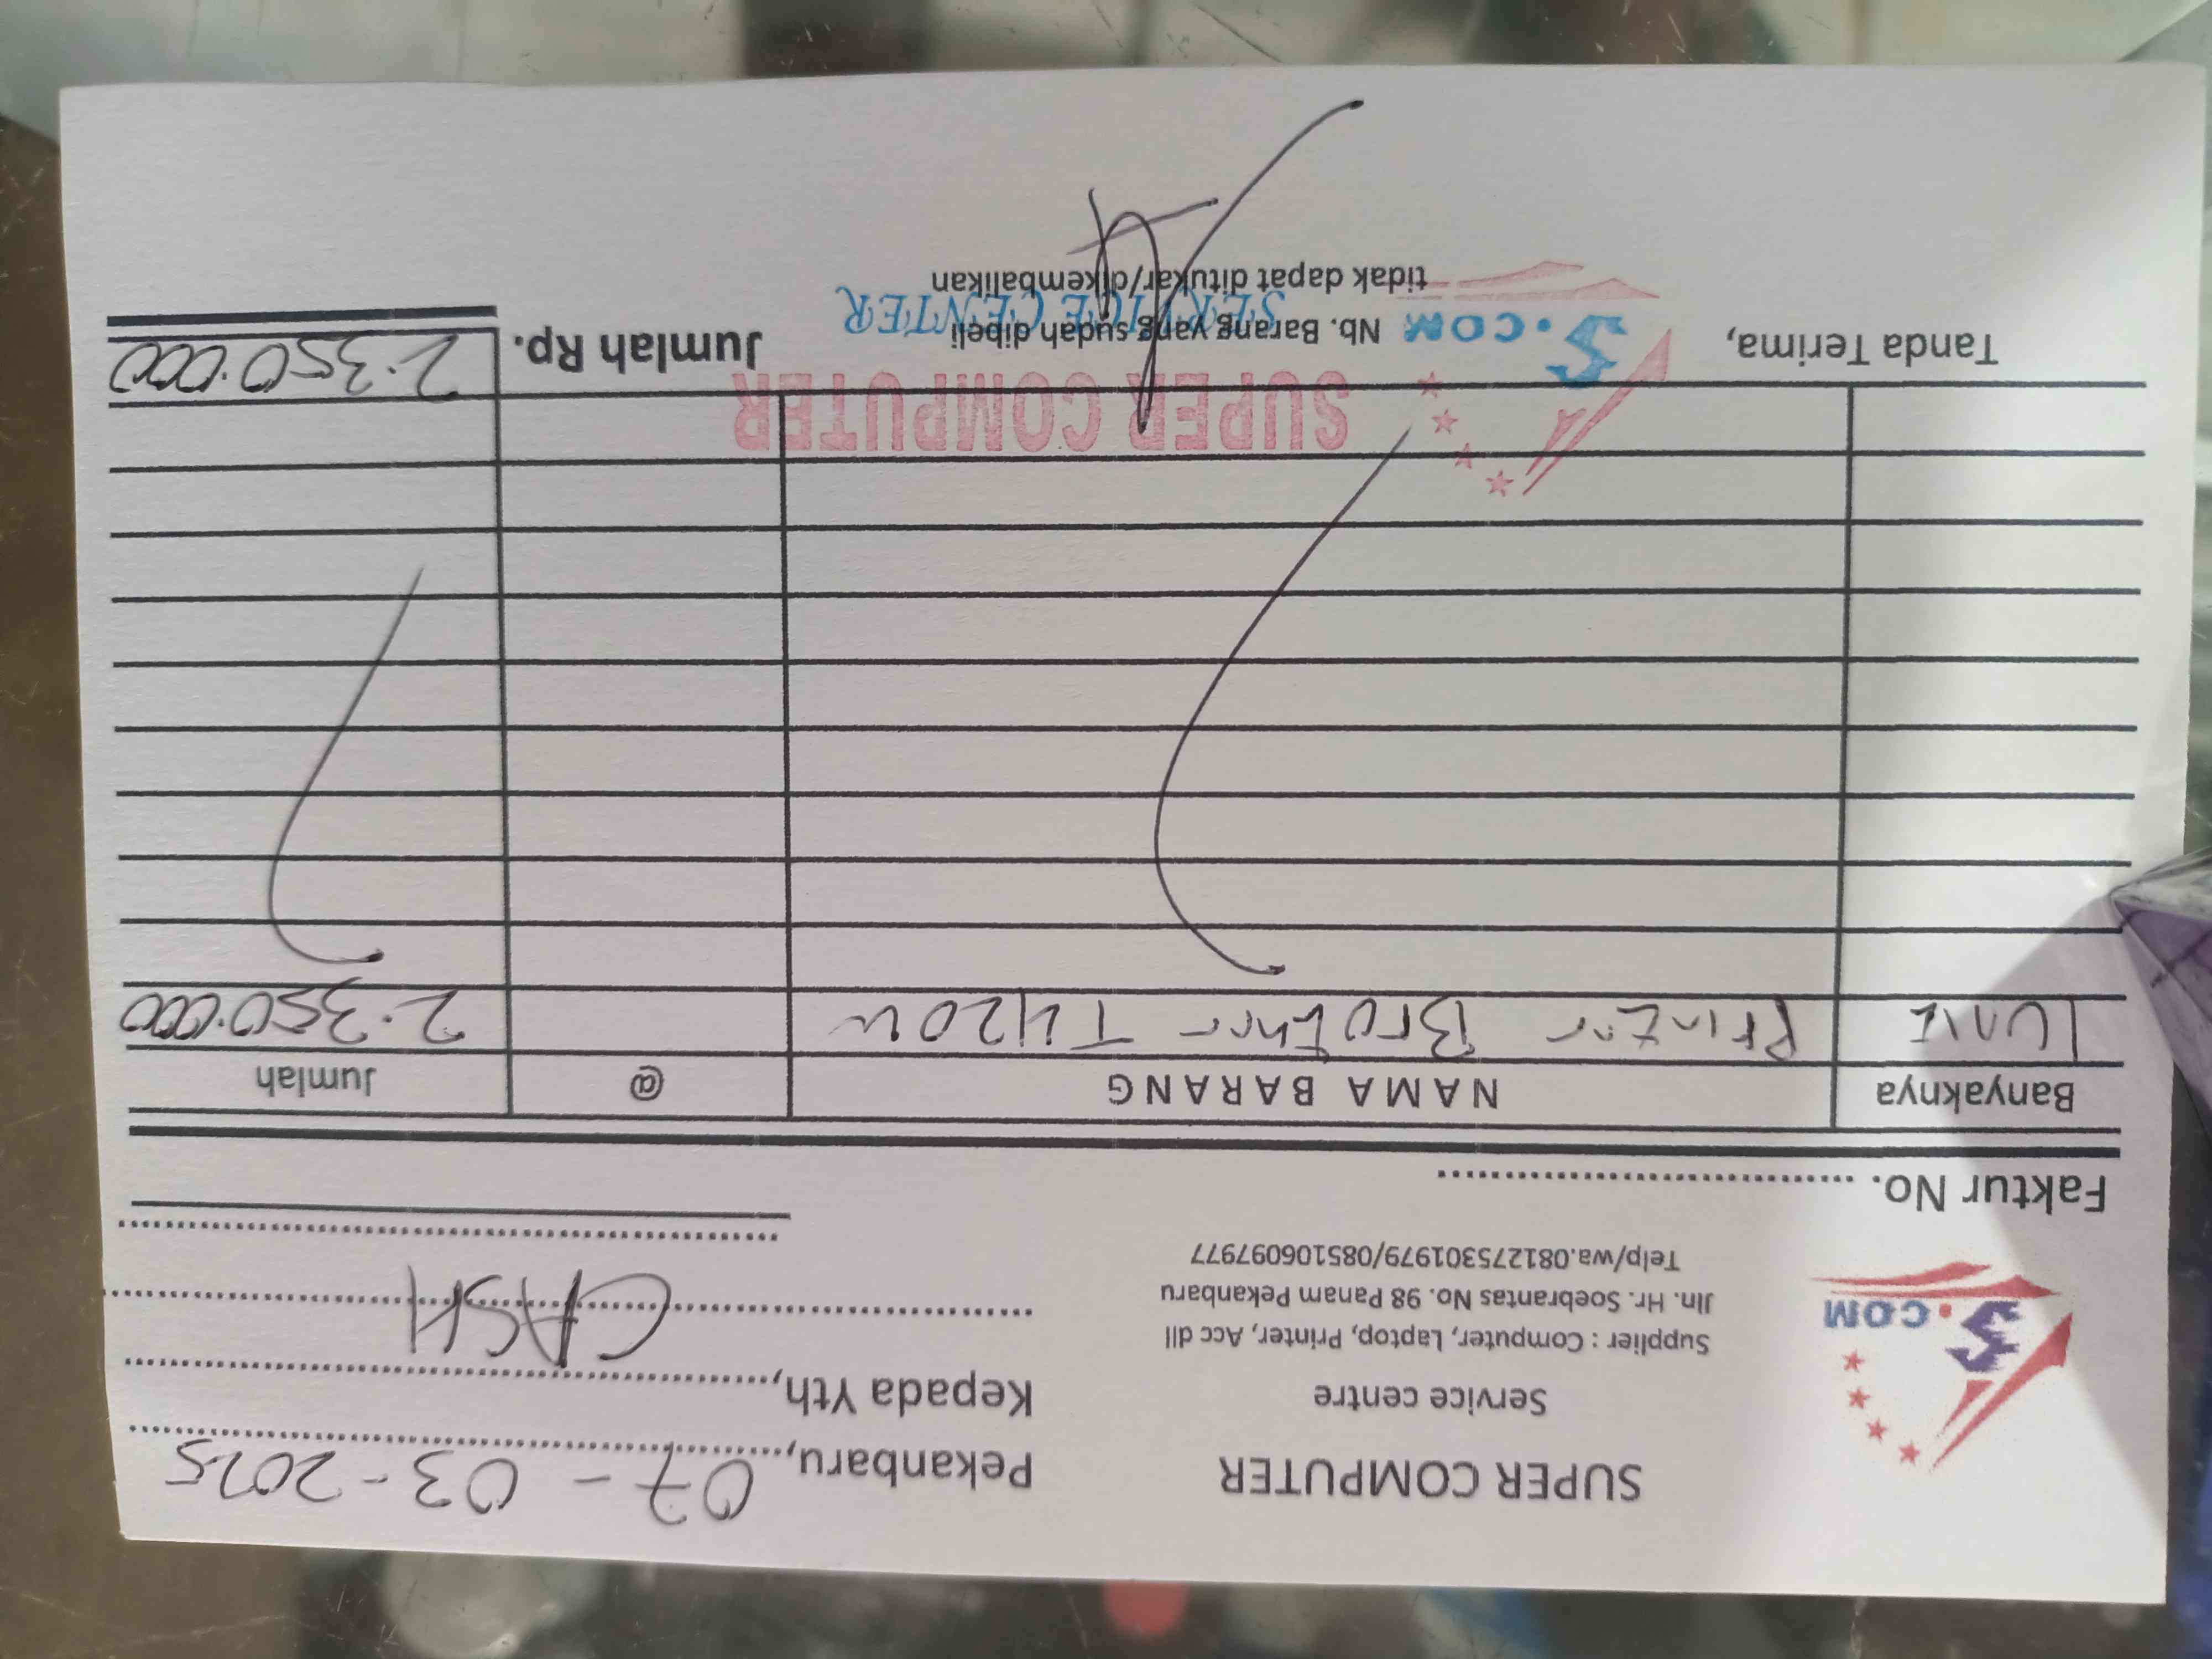 S.COM
SUPER COMPUTER
Service centre
Supplier : Computer, Laptop, Printer, Acc dll
Jln. Hr. Soebrantas No. 98 Panam Pekanbaru
Telp/wa.081275301979/085106097977
Pekanbaru, 07 - 03 - 2025
Kepada Yth,
CASH
Faktur No.
Banyaknya NAMA BARANG @ Jumlah
1 Unit Printer Brother T420W 2.350.000
SUPER COMPUTER
Tanda Terima, S.COM Nb. Barang yang sudah dibeli Jumlah Rp. 2.350.000
SERVICE CENTER
tidak dapat ditukar/dikembalikan